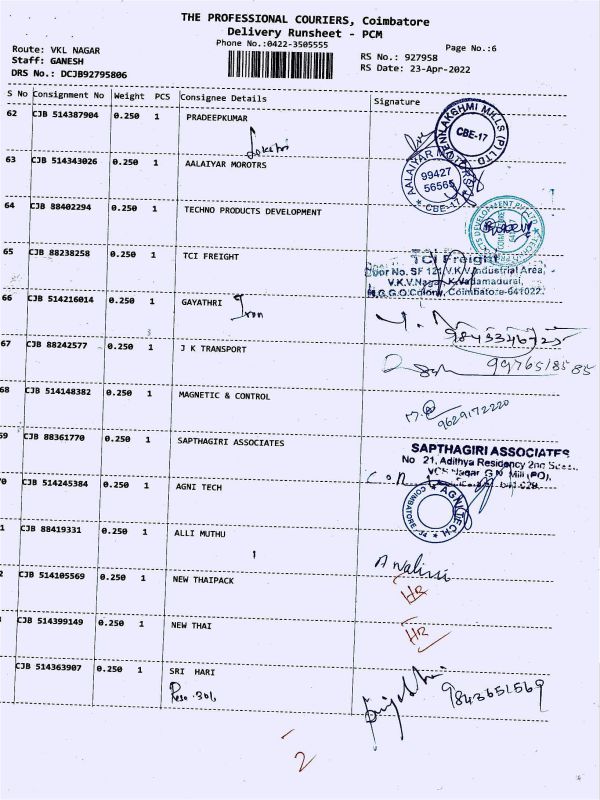 THE PROFESSIONAL COURIERS, Coimbatore
Delivery Runsheet - PCM
Phone No.:0422-3505555
Page No.:6
Route: VKL NAGAR
Staff: GANESH
DRS No.: DCJB92795806
RS No.: 927958
RS Date: 23-Apr-2022
S No Consignment No Weight PCS Consignee Details Signature
62 CJB 514387904 0.250 1 PRADEEPKUMAR
CBE-17
63 CJB 514343026 0.250 1 AALAIYAR MOROTRS
99427
56565
CBE-17
64 CJB 88402294 0.250 1 TECHNO PRODUCTS DEVELOPMENT
65 CJB 88238258 0.250 1 TCI FREIGHT
TCI Freight
Door No. SF 121, V.K.V.Industrial Area,
V.K.V.Nagar, K.Vadamadurai,
Coimbatore-641022.
66 CJB 514216014 0.250 1 GAYATHRI
Iron
9843346725
67 CJB 88242577 0.250 1 J K TRANSPORT
9976518585
68 CJB 514148382 0.250 1 MAGNETIC & CONTROL
9629172220
69 CJB 88361770 0.250 1 SAPTHAGIRI ASSOCIATES
SAPTHAGIRI ASSOCIATES
No 21, Adithya Residency 2nd
70 CJB 514245384 0.250 1 AGNI TECH
AGNI TECH
COIMBATORE
1 CJB 88419331 0.250 1 ALLI MUTHU
2 CJB 514105569 0.250 1 NEW THAIPACK
HR
CJB 514399149 0.250 1 NEW THAI
HR
CJB 514363907 0.250 1 SRI HARI
9843651569
2